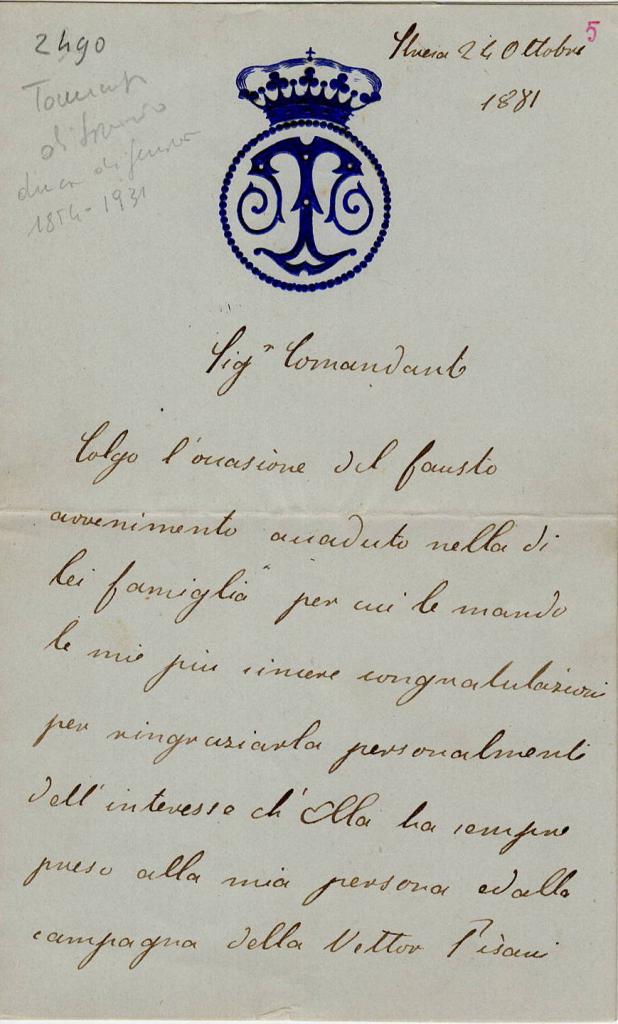 2490
5
di
duca di
1854-1931
Stresa 24 Ottobre
1881
Sigr Comandante
Colgo l'occasione del fausto
avvenimento accaduto nella di
lei famiglia per cui le mando
le mie più sincere congratulazioni
per ringraziarla personalmente
dell'interesse ch'Ella ha sempre
preso alla mia persona ed alla
campagna della Vettor Pisani